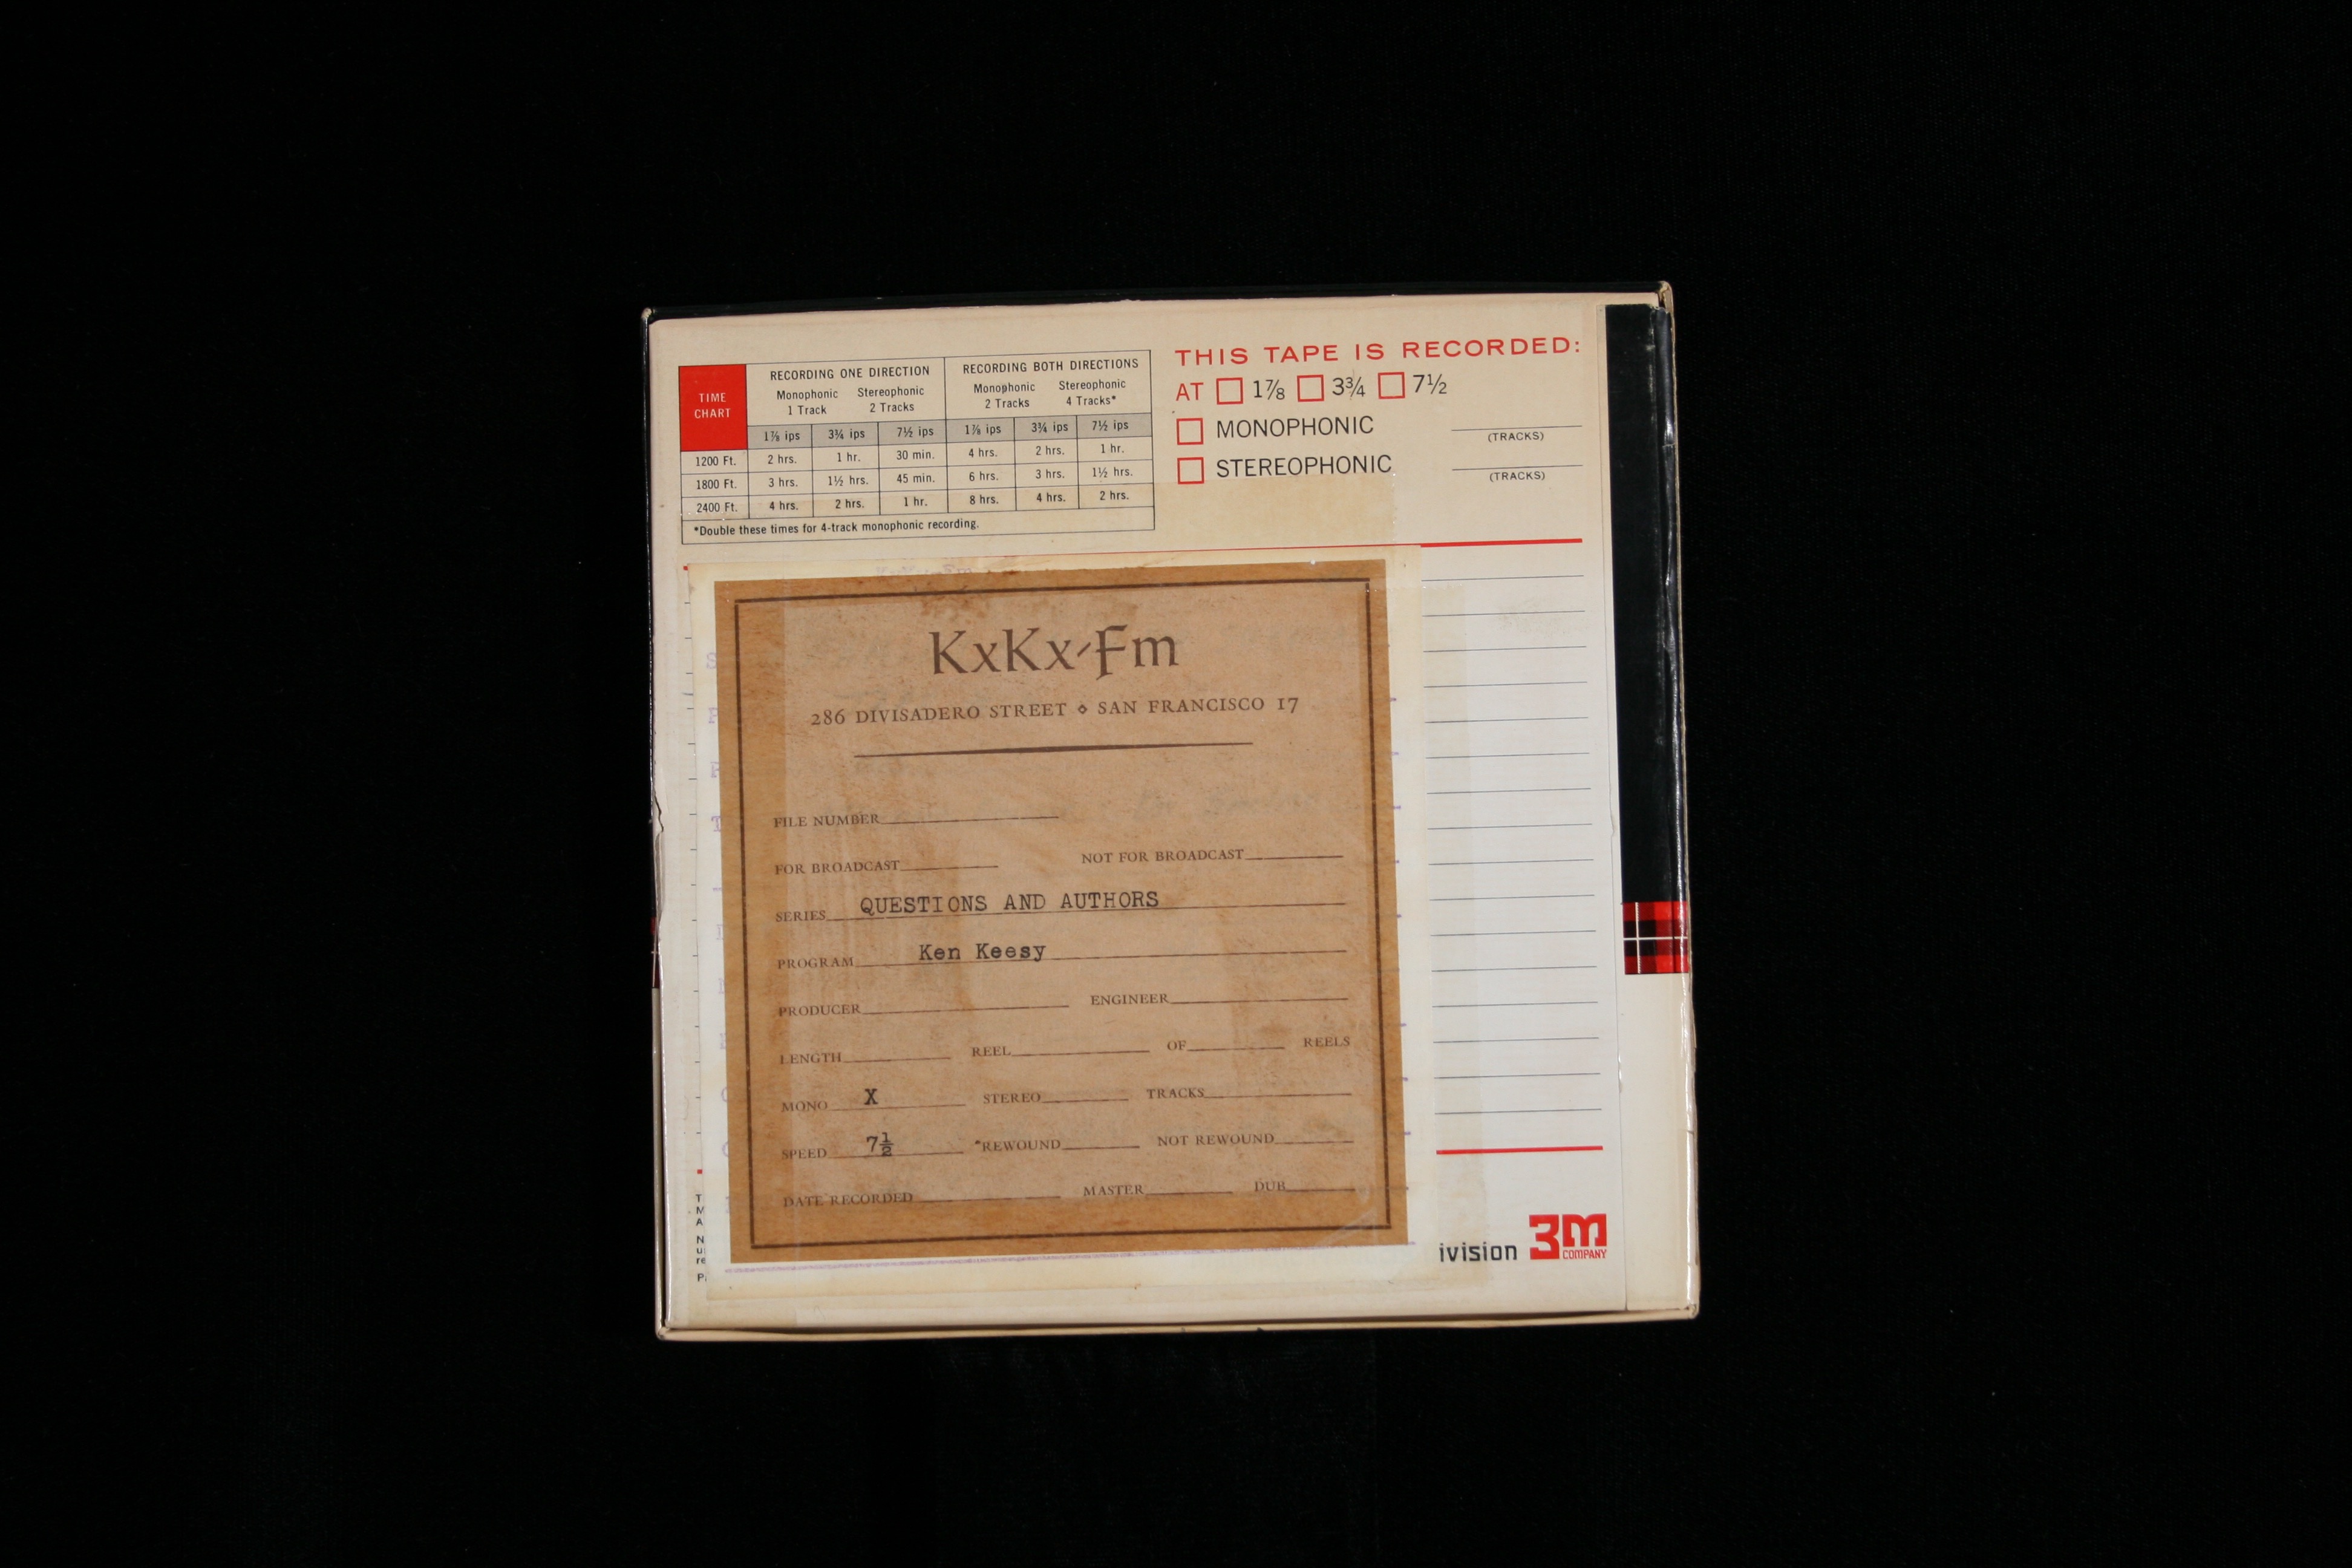 TIME CHART
RECORDING ONE DIRECTION RECORDING BOTH DIRECTIONS
Monophonic Stereophonic Monophonic Stereophonic
1 Track 2 Tracks 2 Tracks 4 Tracks*
1⅞ ips 3¾ ips 7½ ips 1⅞ ips 3¾ ips 7½ ips
1200 Ft. 2 hrs. 1 hr. 30 min. 4 hrs. 2 hrs. 1 hr.
1800 Ft. 3 hrs. 1½ hrs. 45 min. 6 hrs. 3 hrs. 1½ hrs.
2400 Ft. 4 hrs. 2 hrs. 1 hr. 8 hrs. 4 hrs. 2 hrs.
*Double these times for 4-track monophonic recording.
THIS TAPE IS RECORDED:
AT 1⅞ 3¾ 7½
MONOPHONIC (TRACKS)
STEREOPHONIC (TRACKS)
KxKx-Fm
286 DIVISADERO STREET ⋄ SAN FRANCISCO 17
FILE NUMBER
FOR BROADCAST NOT FOR BROADCAST
SERIES QUESTIONS AND AUTHORS
PROGRAM Ken Keesy
PRODUCER ENGINEER
LENGTH REEL OF REELS
MONO X STEREO TRACKS
SPEED 7½ REWOUND NOT REWOUND
DATE RECORDED MASTER DUB
ivision 3M
COMPANY